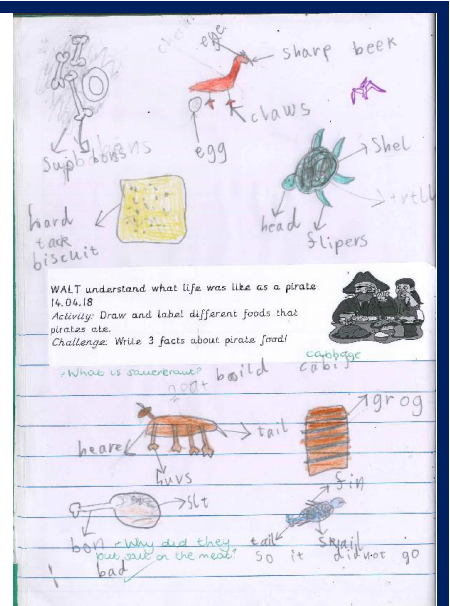 eye
sharp beek
claws
egg
Shel
head
flipers
hard
tack
biscuit
WALT understand what life was like as a pirate
14.04.18
Activity: Draw and label different foods that
pirates ate.
Challenge: Write 3 facts about pirate food!
cabbage
What is sauerkraut?
grog
tail
huvs
fin
slt
bon
Why did they
put salt on the meat?
tail
so it did not go
bad